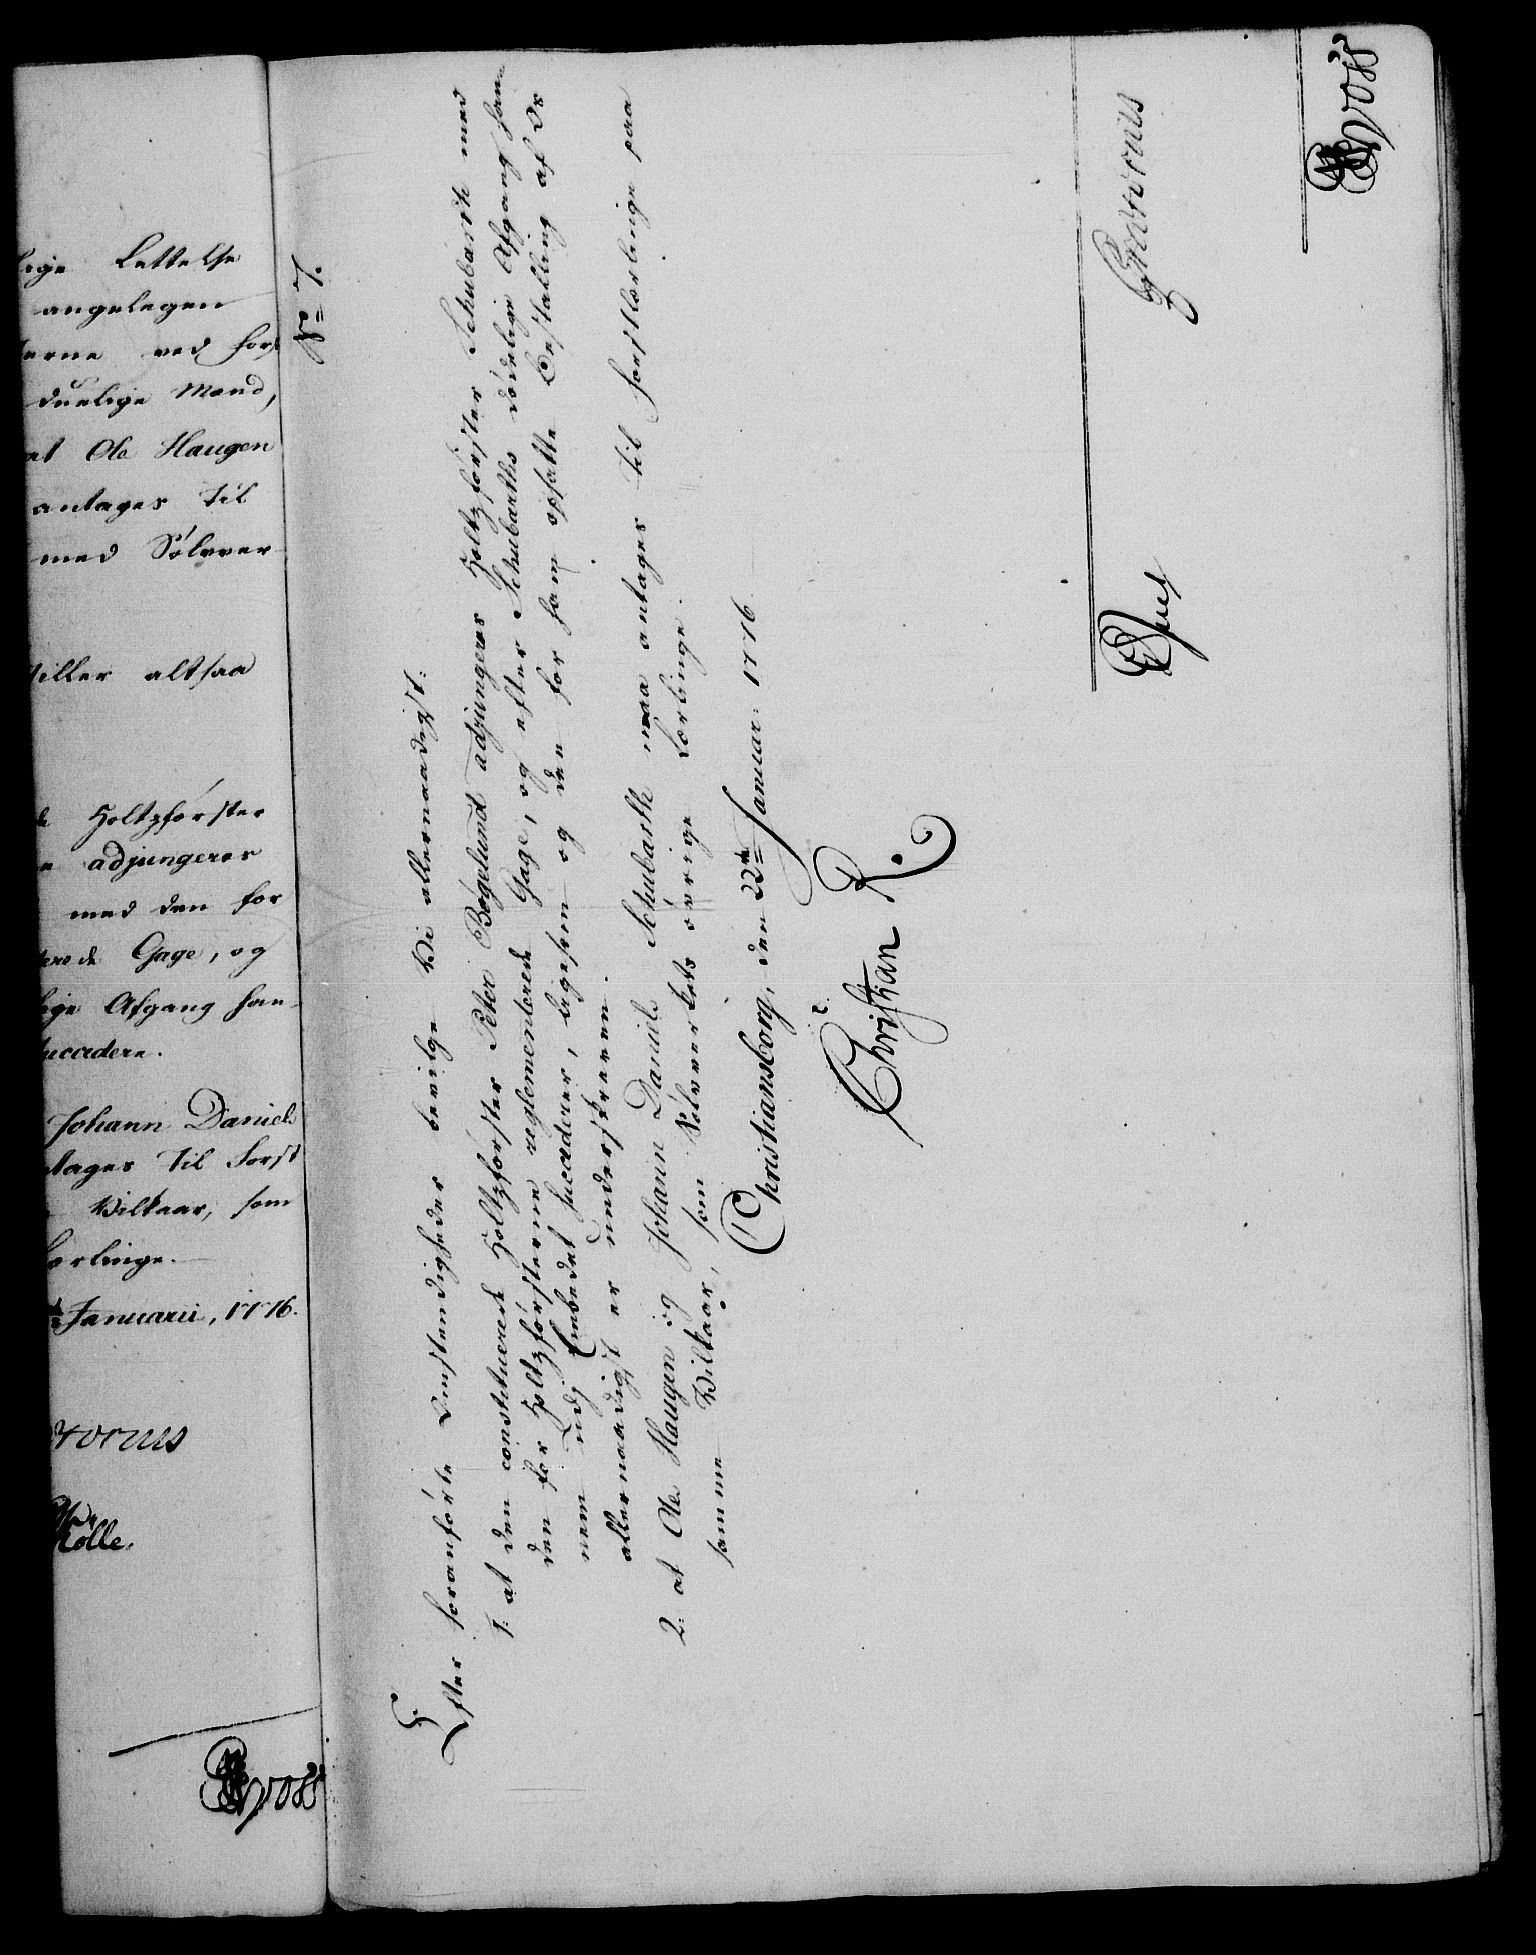 lige Lettelse
angelegen
erne ved Forst
duelige Mænd,
at Ole Haugen
antages til
med Sølvver
stiller altsaa
Holtzførster
adjungeres
med den for
terede Gage, og
lige Afgang han
succedere.
Johann Daniels
ntages til Forst
Vilkaar, som
Lærlinge.
Januarii, 1776.
Mølle.
Wross
No 7.
Efter foranførte Omstændigheder bevilge Vi allernaadigst:
1: at den constituerede Holtzførster Peter Bøgelund adjungeres Holtzførster Schubarth med
den for Holtzførsterne reglementerede Gage, og efter Schubarths dødelige Afgang han
nem udj Embedet succederer, ligesom og den for ham opsatte Bestalling af Os
allernaadigst er underskreven.
2: at Ole Haugen og Johann Daniels Schubarth maa antages til Forstlærlinge paa
samme Vilkaar, som Sølvverkets øvrige Lærlinge.
Christiansborg, den 22de Januar: 1776.
Christian R.
Juel
Wross